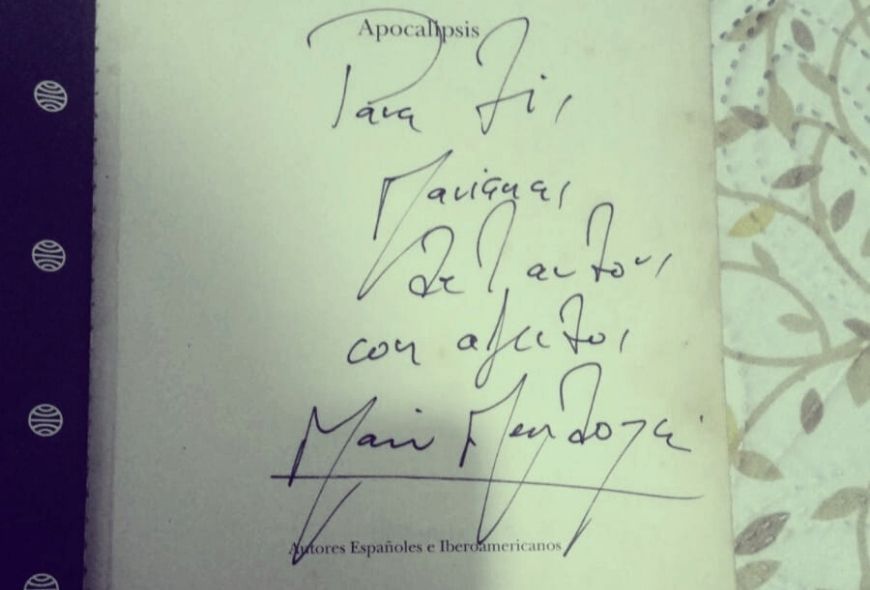 Apocalipsis
Para ti,
Mariana,
del autor,
con afecto,
Mario Mendoza
Autores Españoles e Iberoamericanos